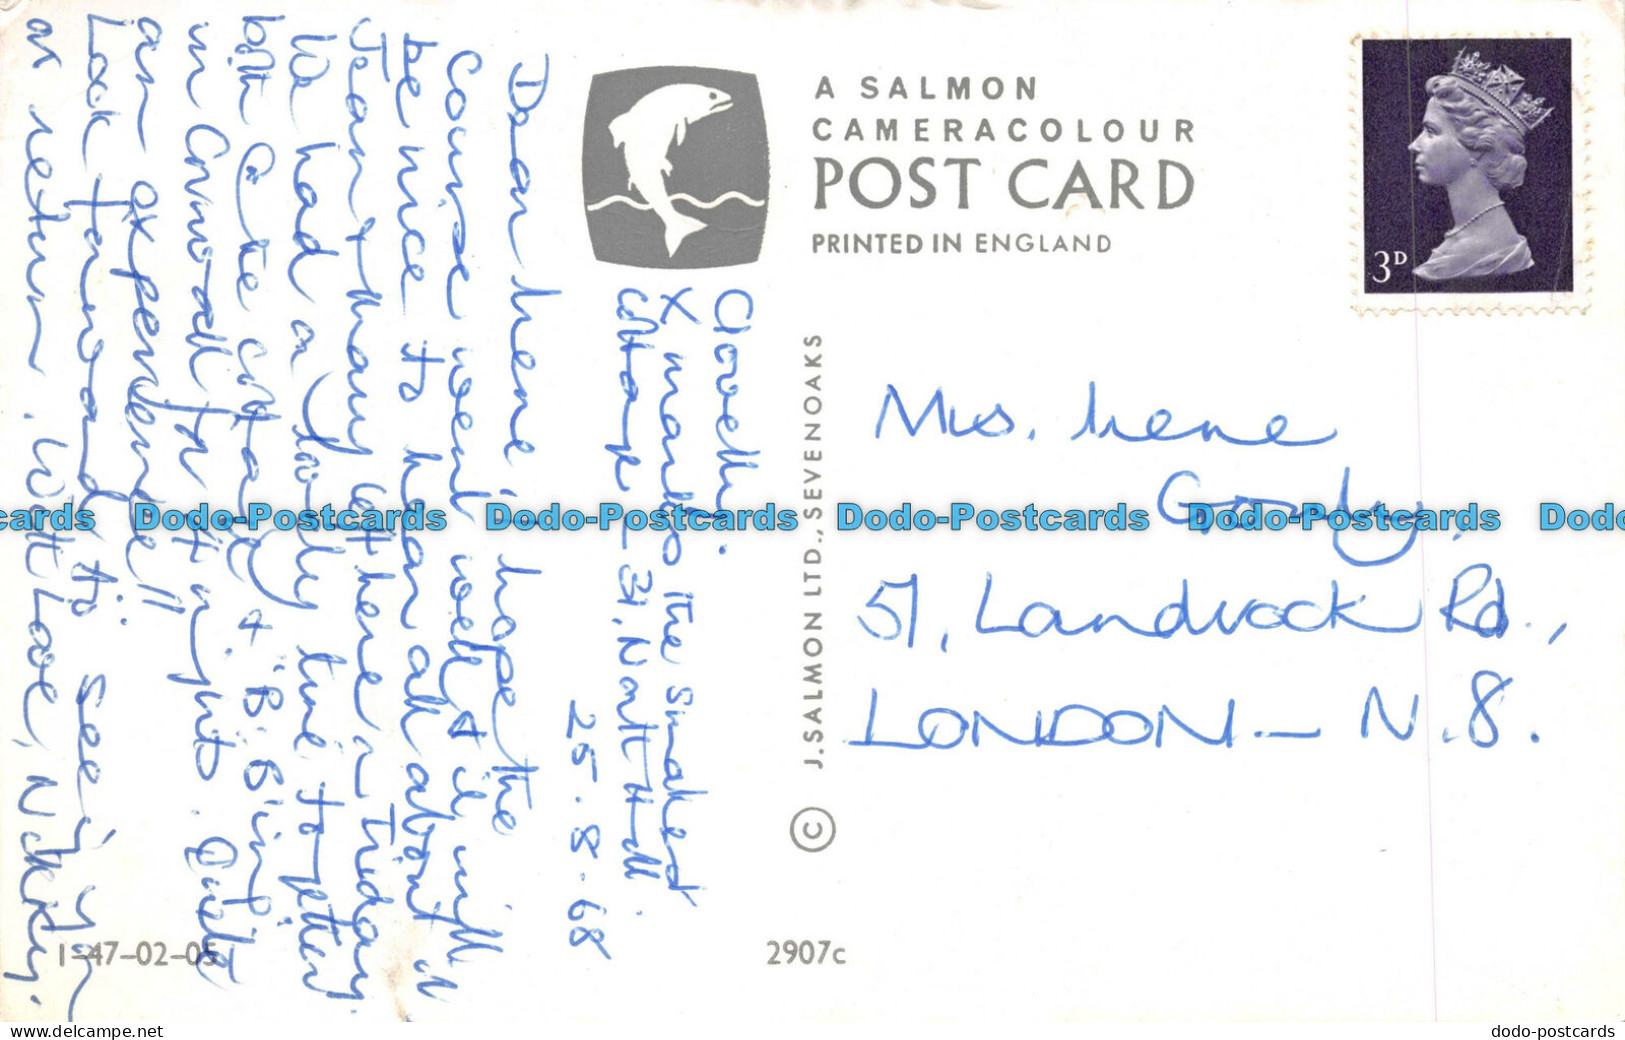 A SALMON
CAMERACOLOUR
POST CARD
PRINTED IN ENGLAND
3D
Clovelly.
X marks the smallest
cottage – 31, North Hill.
25.8.68
Dear Irene, I hope the
course went well & it will
be nice to hear all about it
Jean & Mary left here on Friday.
We had a lovely time together
both @ the cottage & 'B.B'ing'
in Cornwall for a night. Quite
an experience!!
Look forward to seeing you
on return. With Love, Nickety.
J. SALMON LTD., SEVENOAKS ©
Mrs. Irene
Goody,
51, Landrock Rd.,
LONDON – N.8.
cards Dodo-Postcards Dodo-Postcards Dodo-Postcards Dodo-Postcards Dodo
1-47-02-05
2907c
www.delcampe.net
dodo-postcards